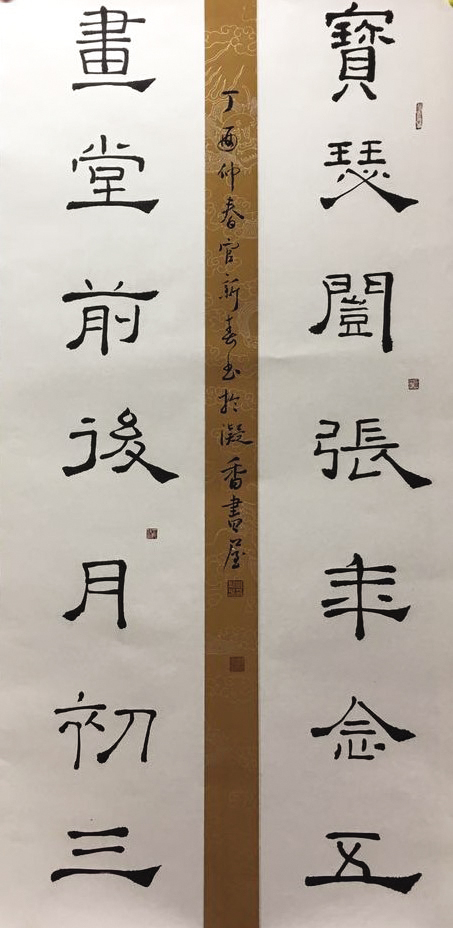 寶瑟闓張年念五
丁酉仲春官新春书於凝香書屋
畫堂前後月初三